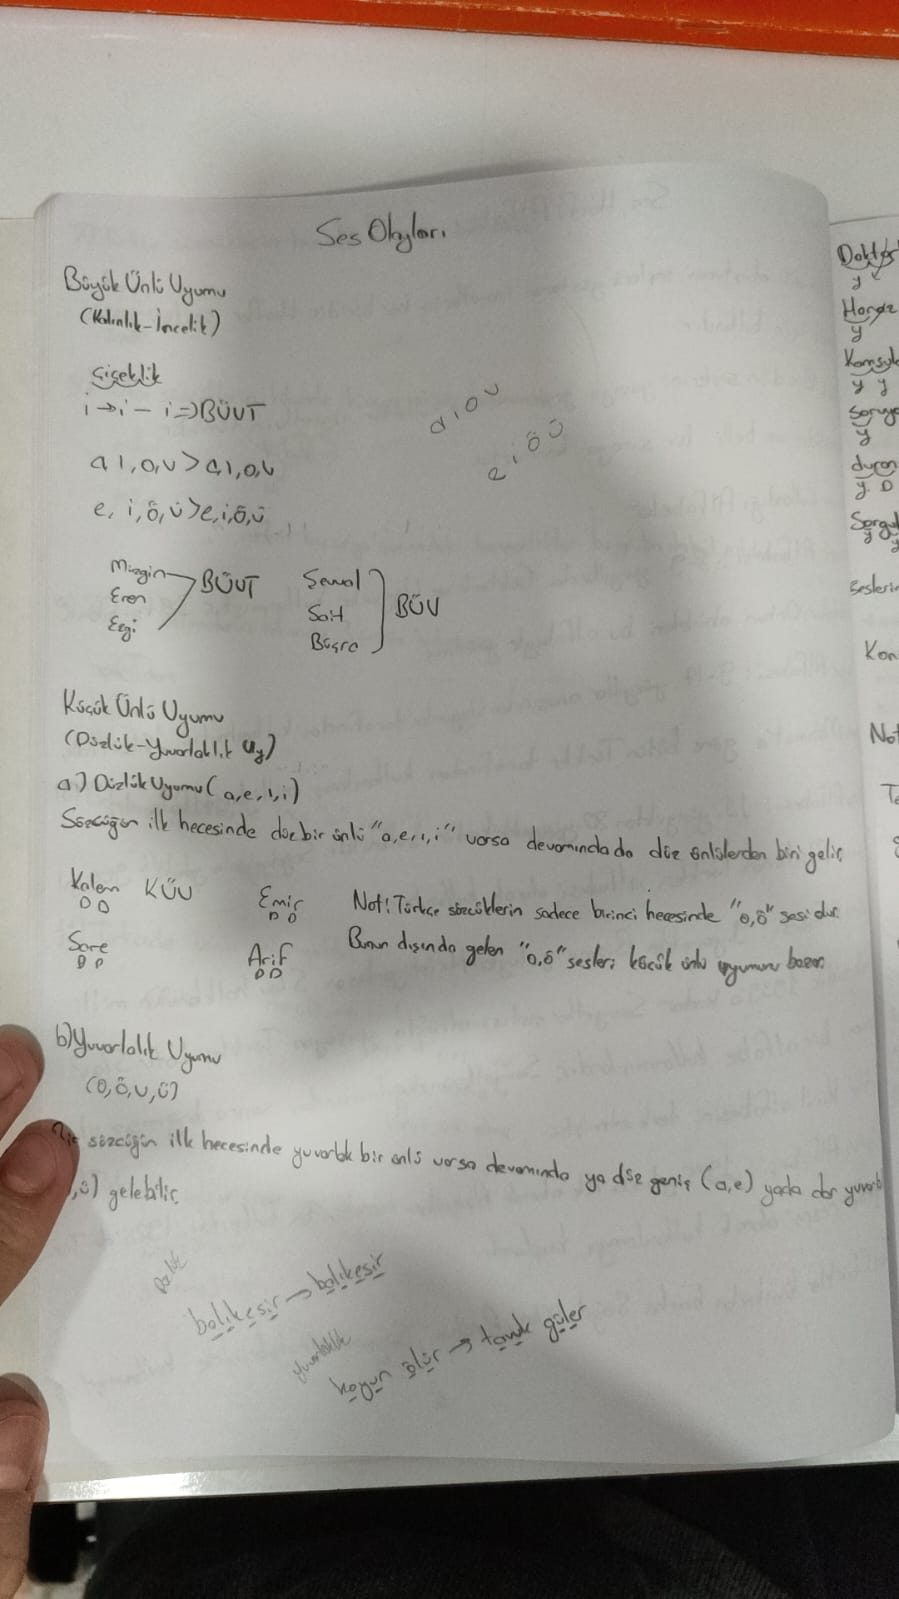 Ses Olayları
Büyük Ünlü Uyumu
(Kalınlık-İncelik)
Çiçeklik
i → i - i => BÜUT
a ı, o, u > a, ı, o, u
e, i, ö, ü > e, i, ö, ü
a ı o u
e i ö ü
Mizgin
Eren
Ezgi
BÜUT
Şewal
Sait
Büşra
BÜU
Küçük Ünlü Uyumu
(Düzlük-Yuvarlaklık Uy)
a) Düzlük Uyumu (a, e, ı, i)
Sözcüğün ilk hecesinde düz bir ünlü "a, e, ı, i" varsa devamında da düz ünlülerden biri gelir
Kalem KÜU
D D
Sare
D D
Emir
D D
Arif
D D
Not! Türkçe sözcüklerin sadece birinci hecesinde "o, ö" sesi olur.
Bunun dışında gelen "o, ö" sesleri küçük ünlü uyumunu bozar.
b) Yuvarlalık Uyumu
(o, ö, u, ü)
sözcüğün ilk hecesinde yuvarlak bir ünlü varsa devamında ya düz geniş (a, e) yada dar yuvarl
, ü) gelebilir
balıkesir → balıkesir
yuvarlaklık
koyun ölür → tavuk güler
Doktor
y
y
y y
y
duran
y D
Kon
Not